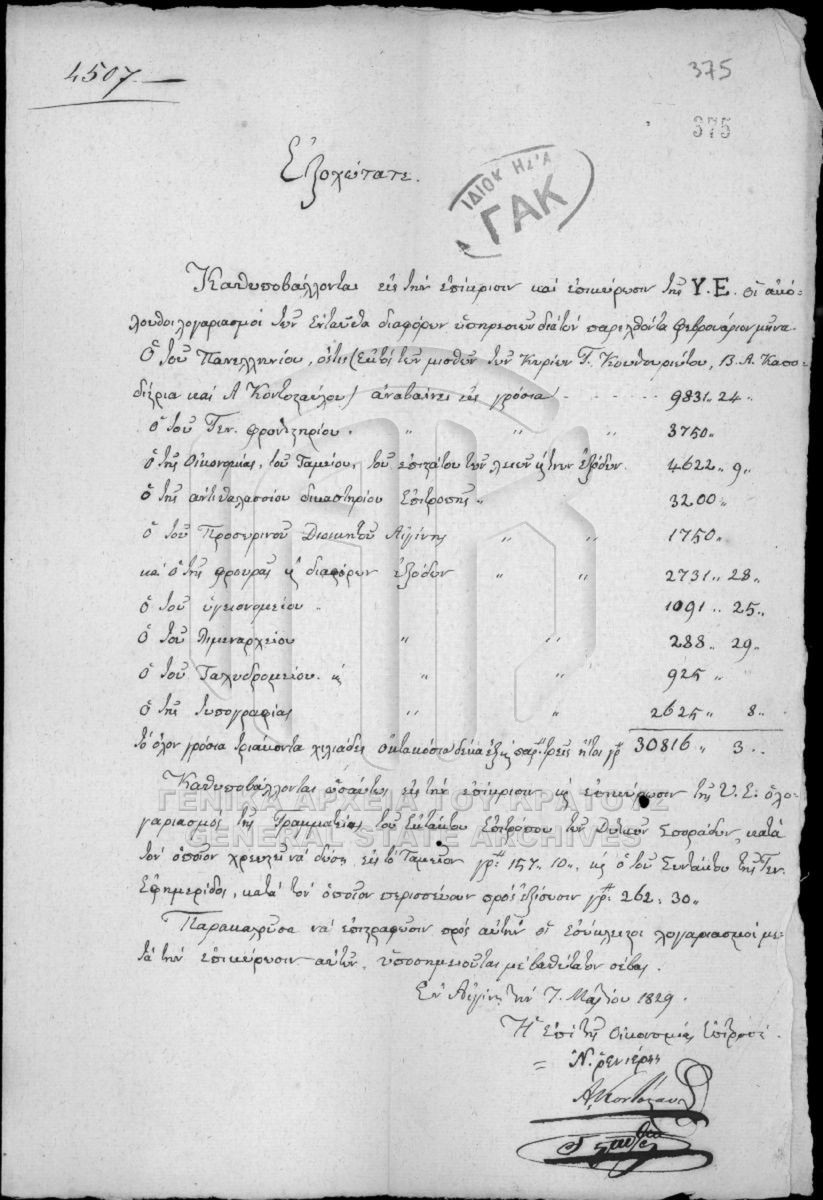 4507.—
375
375
Ἐξοχώτατε.
ΙΔΙΟΚΤΗΣΊΑ
ΓΑΚ
Καθυποβάλλονται εἰς τὴν ἐπίκρισιν καὶ ἐπικύρωσιν τῆς Υ. Ε. οἱ ἀκό-
λουθοι λογαριασμοὶ τῶν ἐνταῦθα διαφόρων ὑπηρεσιῶν διὰ τὸν παρελθόντα φεβρουάριον μῆνα.
Ὁ τοῦ Πανελληνίου, ὅστις (ἐκτὸς τῶν μισθῶν τῶν Κυρίων Γ. Κουντουριώτου, Β. Α. Καπο-
δίστρια καὶ Α Κοντοσταύλου) ἀναβαίνει εἰς γρόσια - - - - - - 9831 „ 24 „
ὁ τοῦ Γεν. φροντιστηρίου. „ „ „ 3750 „
ὁ τῆς Οἰκονομίας, τοῦ Ταμείου, τοῦ ἐπιστάτου τῶν καὶ τῶν ἐξόδων. 4622 „ 9 „
ὁ τῆς ἀντιθαλασσίου δικαστηρίου Ἐπιτροπῆς „ 3200 „
ὁ τοῦ Προσωρινοῦ Διοικητοῦ Αἰγίνης „ „ 1750 „
καὶ ὁ τῆς φρουρᾶς καὶ διαφόρων ἐξόδων „ „ 2731 „ 28 „
ὁ τοῦ ὑγειονομείου „ 1091 „ 25 „
ὁ τοῦ Λιμεναρχείου „ „ 288 „ 29 „
ὁ τοῦ Ταχυδρομείου. καὶ „ „ 925 „
ὁ τῆς τυπογραφίας „ „ 2625 „ 8 „
τὸ ὅλον γρόσια τριάκοντα χιλιάδες ὀκτακόσια δεκαέξ καὶ παρ: τρεῖς ἤτοι γρ: 30816 „ 3 „
Καθυποβάλλονται ὡσαύτως εἰς τὴν ἐπίκρισιν καὶ ἐπικύρωσιν τῆς Υ. Ε. ὁ λο-
γαριασμὸς τῆς Γραμματείας τοῦ Ἐκτάκτου Ἐπιτρόπου τῶν Δυτικῶν Σποράδων, κατὰ
τὸν ὁποῖον χρεωστεῖ νὰ δώσῃ εἰς τὸ Ταμεῖον γρ: 157 „ 10 „, καὶ ὁ τοῦ Συντάκτου τῆς Γεν.
Ἐφημερίδος, κατὰ τὸν ὁποῖον περισσεύουν πρὸς ἐξίσωσιν γρ: 262 : 30 „
Παρακαλοῦσα νὰ ἐπιστραφῶσιν πρὸς αὐτὴν οἱ ἐσώκλειστοι λογαριασμοὶ με-
τὰ τὴν ἐπικύρωσιν αὐτῶν, ὑποσημειοῦται μὲ βαθύτατον σέβας.
Ἐν Αἰγίνῃ τὴν 7. Μαρτίου 1829.
Ἡ ἐπὶ τῆς Οἰκονομίας Ἐπιτροπὴ.
= Ν. Ῥενιέρης
Α. Κοντόσταυλος
ΓΕΝΙΚΑ ΑΡΧΕΙΑ ΤΟΥ ΚΡΑΤΟΥΣ
GENERAL STATE ARCHIVES